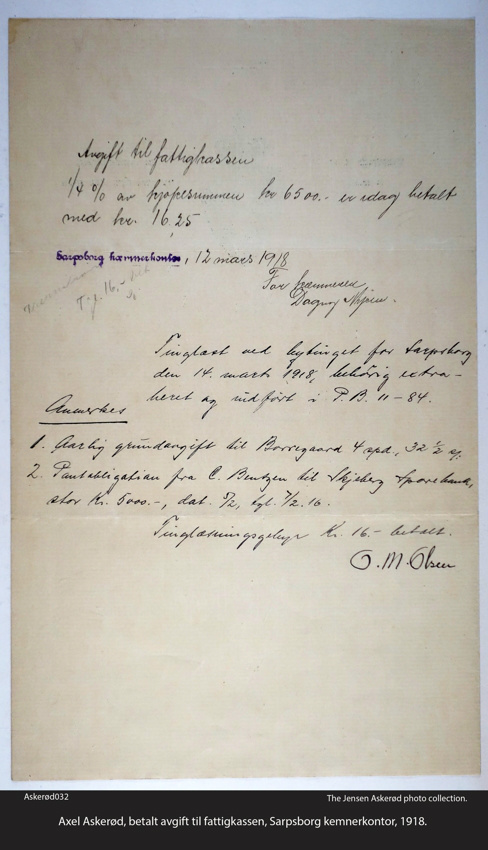 Avgift til fattigkassen
1/4 % av kjöpesummen kr 6500.- er idag betalt
med kr. 16,25
Sarpsborg kæmnerkontor, 12 mars 1918
For kæmneren
Dagny
T.g. 16.-
Tinglæst ved bytinget for Sarpsborg
den 14. marts 1918, behörig extra-
heret og indført i P.B. 11-84.
Anmerkes
1. Aarlig grundavgift til Borregaard 4 spd., 32 1/2 s.
2. Pantobligation fra C. Bentzen til Skjeberg Sparebank,
stor Kr. 5000.-, dat. 5/2, tgl. 7/2.16.
Tinglæsningsgebyr Kr. 16.- betalt.
O. M. Olsen
Askerød032
The Jensen Askerød photo collection.
Axel Askerød, betalt avgift til fattigkassen, Sarpsborg kemnerkontor, 1918.